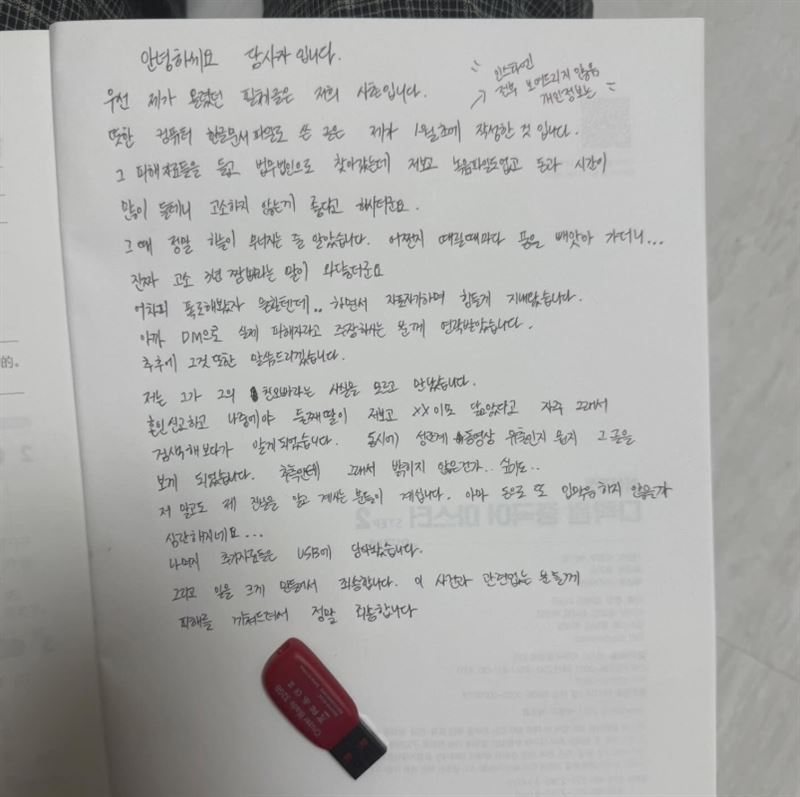 안녕하세요 당사자입니다.
인스타엔
전부 보여드리지 않음
개인정보는
우선 제가 올렸던 필체글은 저희 사촌입니다.
또한 컴퓨터 한글문서파일로 쓴 글은 제가 1월초에 작성한 것 입니다.
그 피해자료들을 들고 법무법인으로 찾아갔는데 저보고 녹음파일도업고 돈과 시간이
많이 들테니 고소하지 않는게 좋다고 하시더군요.
그 때 정말 하늘이 무너지는 줄 알았습니다. 어쩐지 때릴때마다 폰을 빼앗아 가더니...
진짜 고소 3년 짬바라는 말이 와닿더군요
어차피 폭로해봤자 일텐데.. 하면서 자포자기하며 힘들게 지내왔습니다.
아까 DM으로 실제 피해자라고 주장하시는 분께 연락받았습니다.
추후에 그것 또한 말씀드리겠습니다.
저는 그가 그의 친오빠라는 사실을 모르고 만났습니다.
혼인신고하고 나중에야 둘째딸이 저보고 XX이모 닮았다고 자주 그래서
검색해보다가 알게되었습니다. 동시에 동영상 유출인지 뭔지 그 글을
보게 되었습니다. 추측인데 그래서 밝히지 않은건가.. 싶기도..
저 말고도 제 진실을 알고 계시는 분들이 계십니다. 아마 돈으로 또 입막음 하지 않을까
심란해지네요...
나머지 추가자료들은 USB에 담아놨습니다.
그리고 일을 크게 만들어서 죄송합니다. 이 사건과 관련없는 분들께
피해를 끼쳐드려서 정말 죄송합니다
Cruzer Blade 32GB
的。
STEP 2